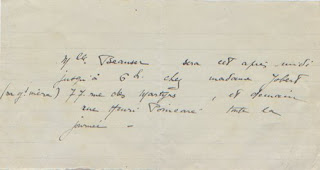 Mlle Beauser sera cet après midi
jusqu'à 6 h. chez madame Jobert
77 rue des Martyrs, et demain
rue Henri Poincaré toute la
journée -